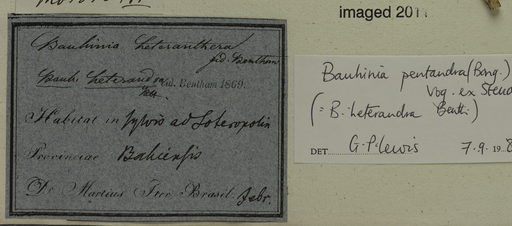 imaged 201
Bauhinia heteranthera
fid. Bentham
Bauh. heterandra
fid. Bentham 1869.
Habitat in sylvis ad Soteropolin
Provinciae Bahiensis
Dr. Martius Iter Brasil. Febr.
Bauhinia pentandra (Bong.)
Vog. ex Steud
(= B. heterandra Benth.)
DET. G.P. Lewis 7.9.198